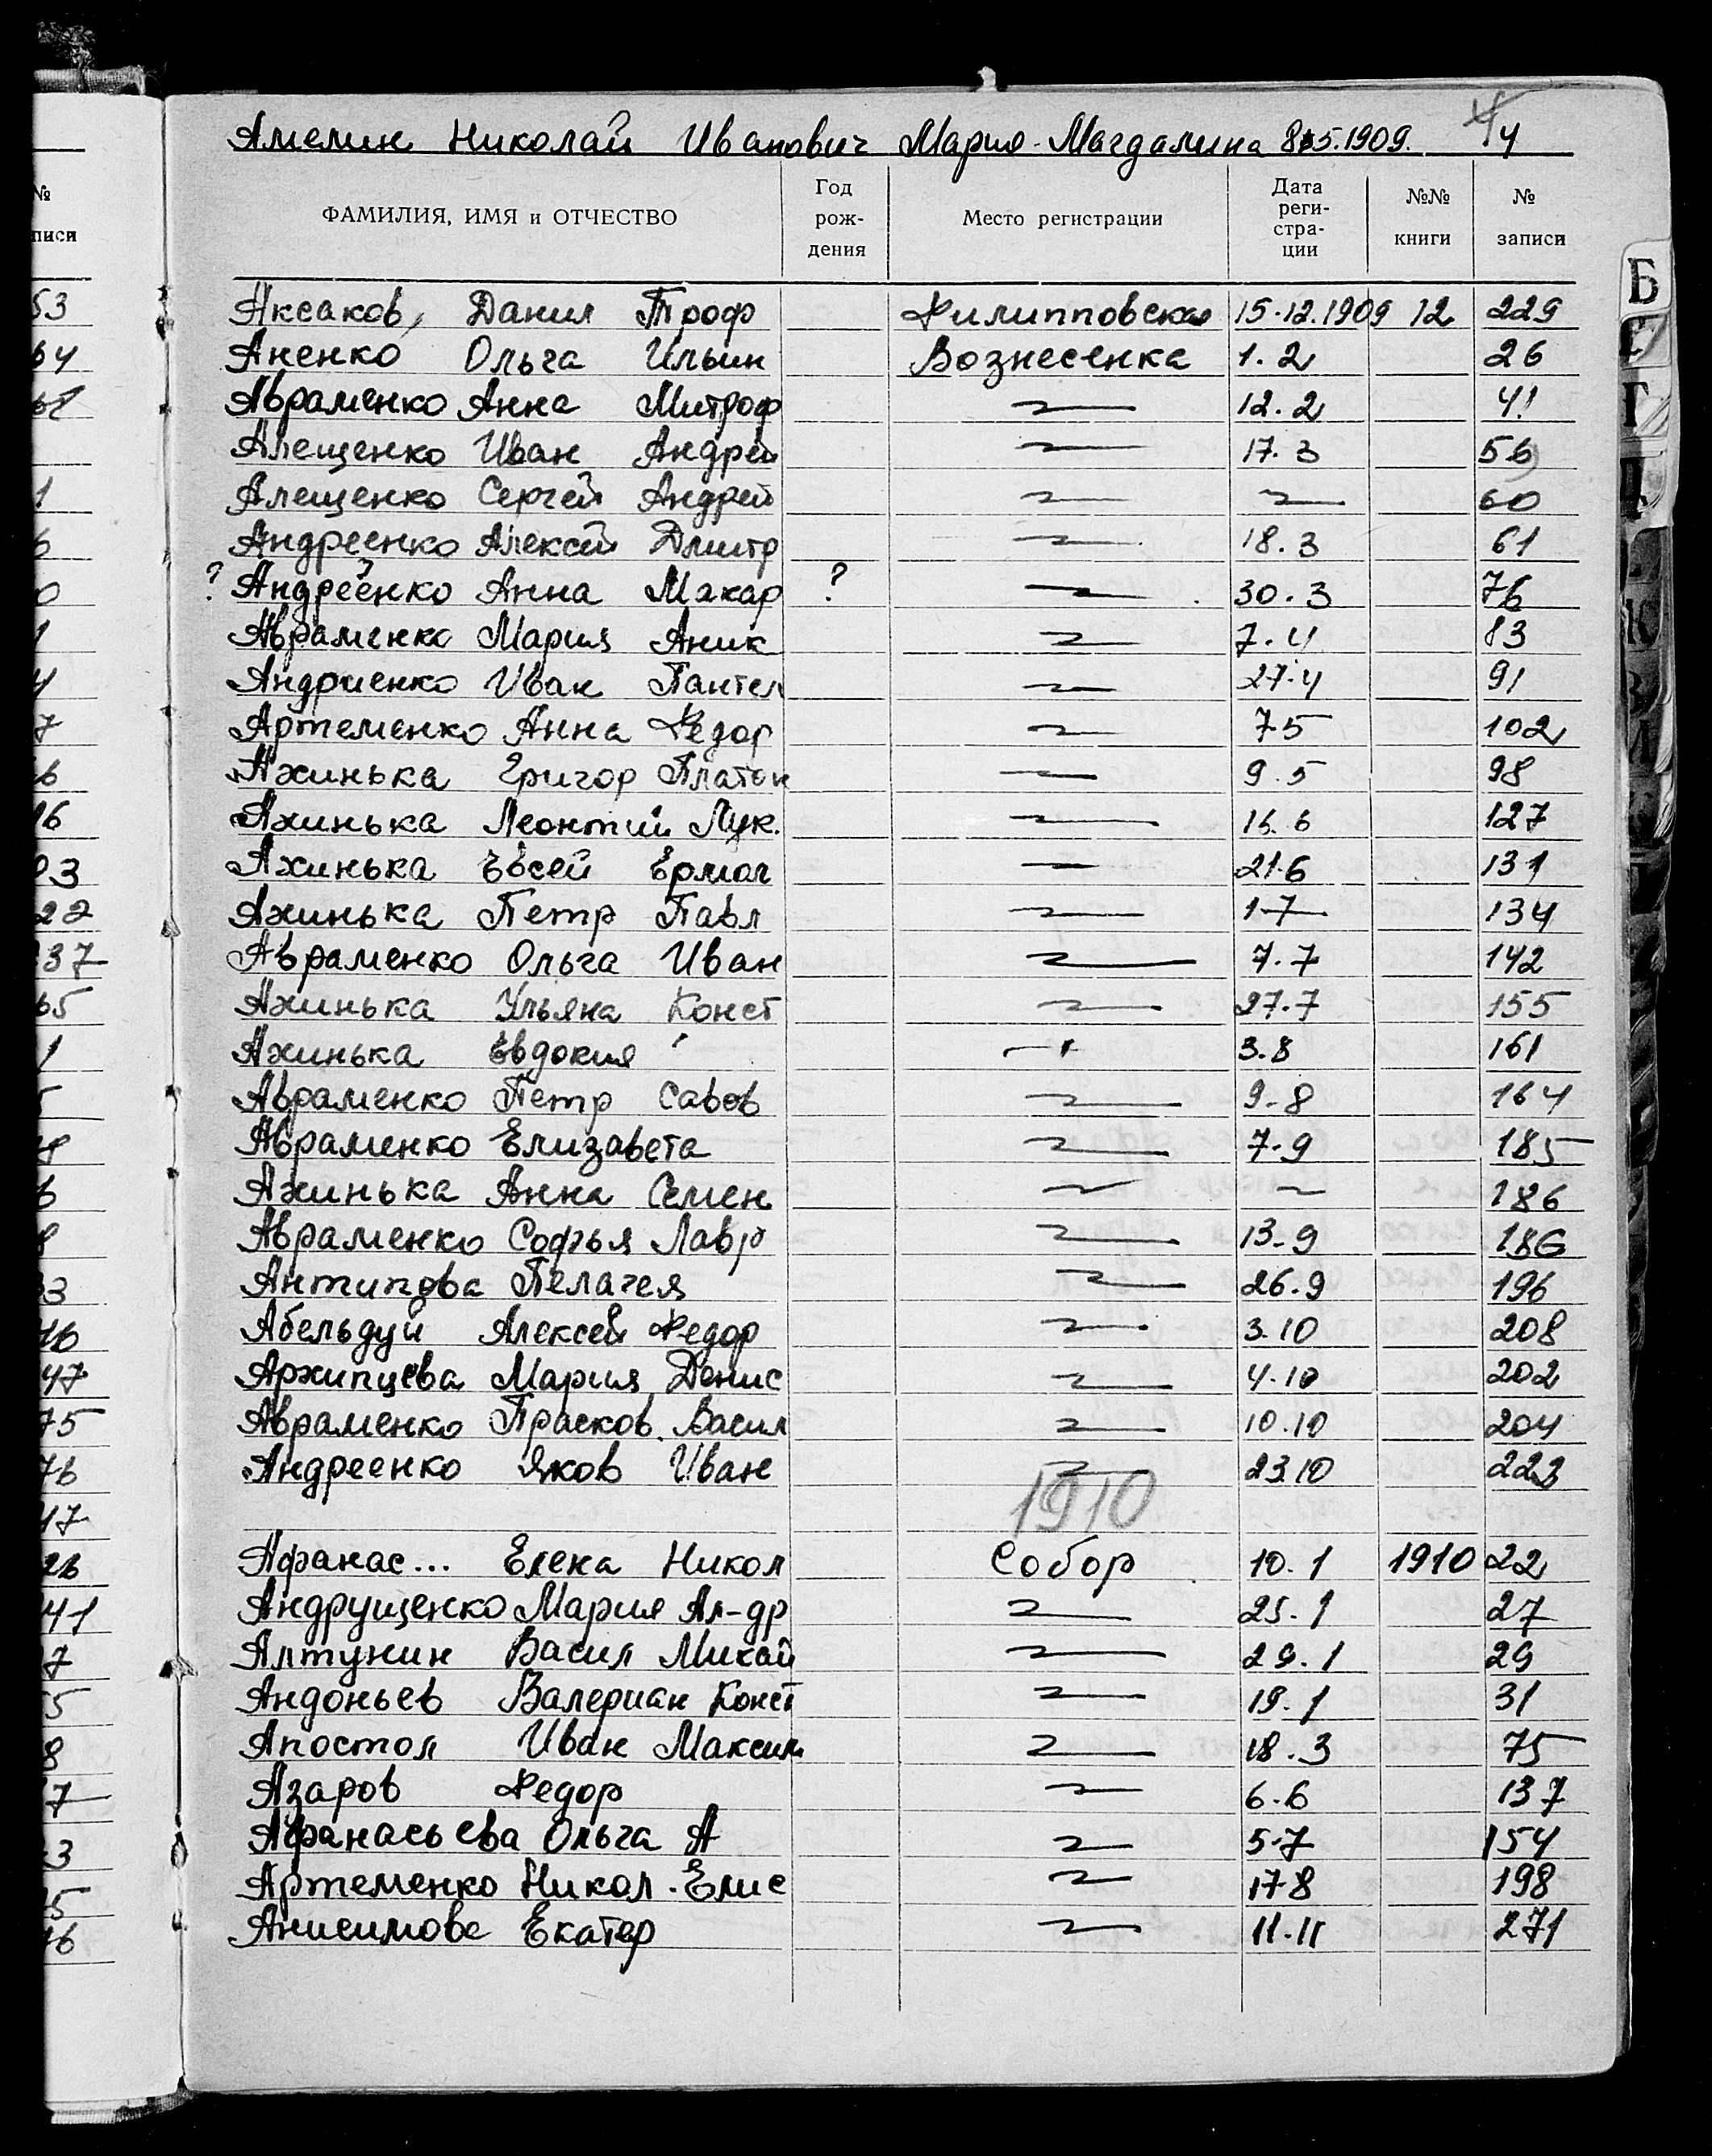 Амелин Николай Иванович Мария-Магдалина 8.5.1909. 4
ФАМИЛИЯ, ИМЯ и ОТЧЕСТВО Год рож-дения Место регистрации Дата реги-стра-ции №№ книги № записи
Аксаков, Данил Троф Филипповская 15.12.1909 12 229
Аненко Ольга Ильин Вознесенка 1.2 26
Авраменко Анна Митроф 12.2 41
Алещенко Иван Андрей 17.3 56
Алещенко Сергей Андрей 60
Андреенко Алексей Дмитр 18.3 61
? Андреенко Анна Макар ? 30.3 76
Авраменко Мария Аник 7.4 83
Андриенко Иван Пантел 27.4 91
Артеменко Анна Федор 7 5 102
Ахинька Григор Платон 9.5 98
Ахинька Леонтий Лук. 16.6 127
Ахинька Евсей Ермог 21.6 131
Ахинька Петр Павл 1-7 134
Авраменко Ольга Иван 7.7 142
Ахинька Ульяна Конст 27.7 155
Ахинька Евдокия 3.8 161
Авраменко Петр Савов 9-8 164
Авраменко Елизавета 7-9 185
Ахинька Анна Семен 186
Авраменко Софья Лавр 13-9 186
Антипова Пелагея 26.9 196
Абельдуй Алексей Федор 3.10 208
Архипцева Мария Денис 4.10 202
Авраменко Прасков. Васил 10.10 204
Андреенко Яков Иван 23.10 223
1910
Афанас... Елена Никол Собор 10.1 1910 22
Андрущенко Мария Ал-др 25.1 27
Алтунин Васил Михай 29.1 29
Андоньев Валериан Конст 19.1 31
Апостол Иван Максим 18.3 75
Азаров Федор 6.6 137
Афанасьева Ольга А 5-7 154
Артеменко Никол. Елис 17 8 198
Анисимова Екатер 11.11 271